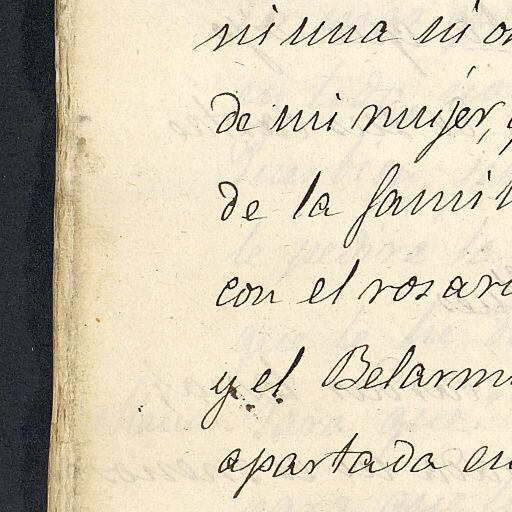 ni una ni o
de mi mujer,
de la famil
con el rosari
y el Belarmi
apartada en